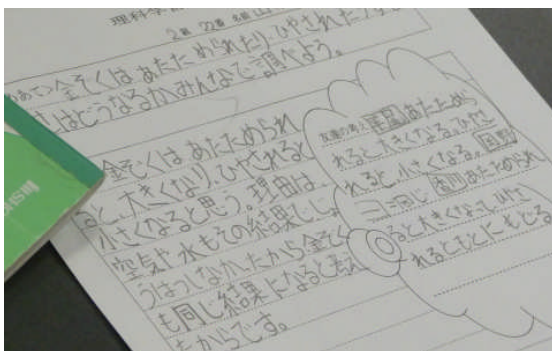 理科学
2 22
めあて 金ぞくは あたためられたり、ひやされたり
はどうなるかみんなで調べよう。
金ぞくは あたためられ
ると、大きくなり、ひやされると
小さくなると思う。理由は、
空気や水もその結果し
うはつしなかったから金ぞく
も同じ結果になると考え
たからです。
友達の考え あたため
れると、大きくなる。ひやさ
れると、小さくなる。
同じ あたためられ
ると大きくなって、ひやさ
れるともとにもどる